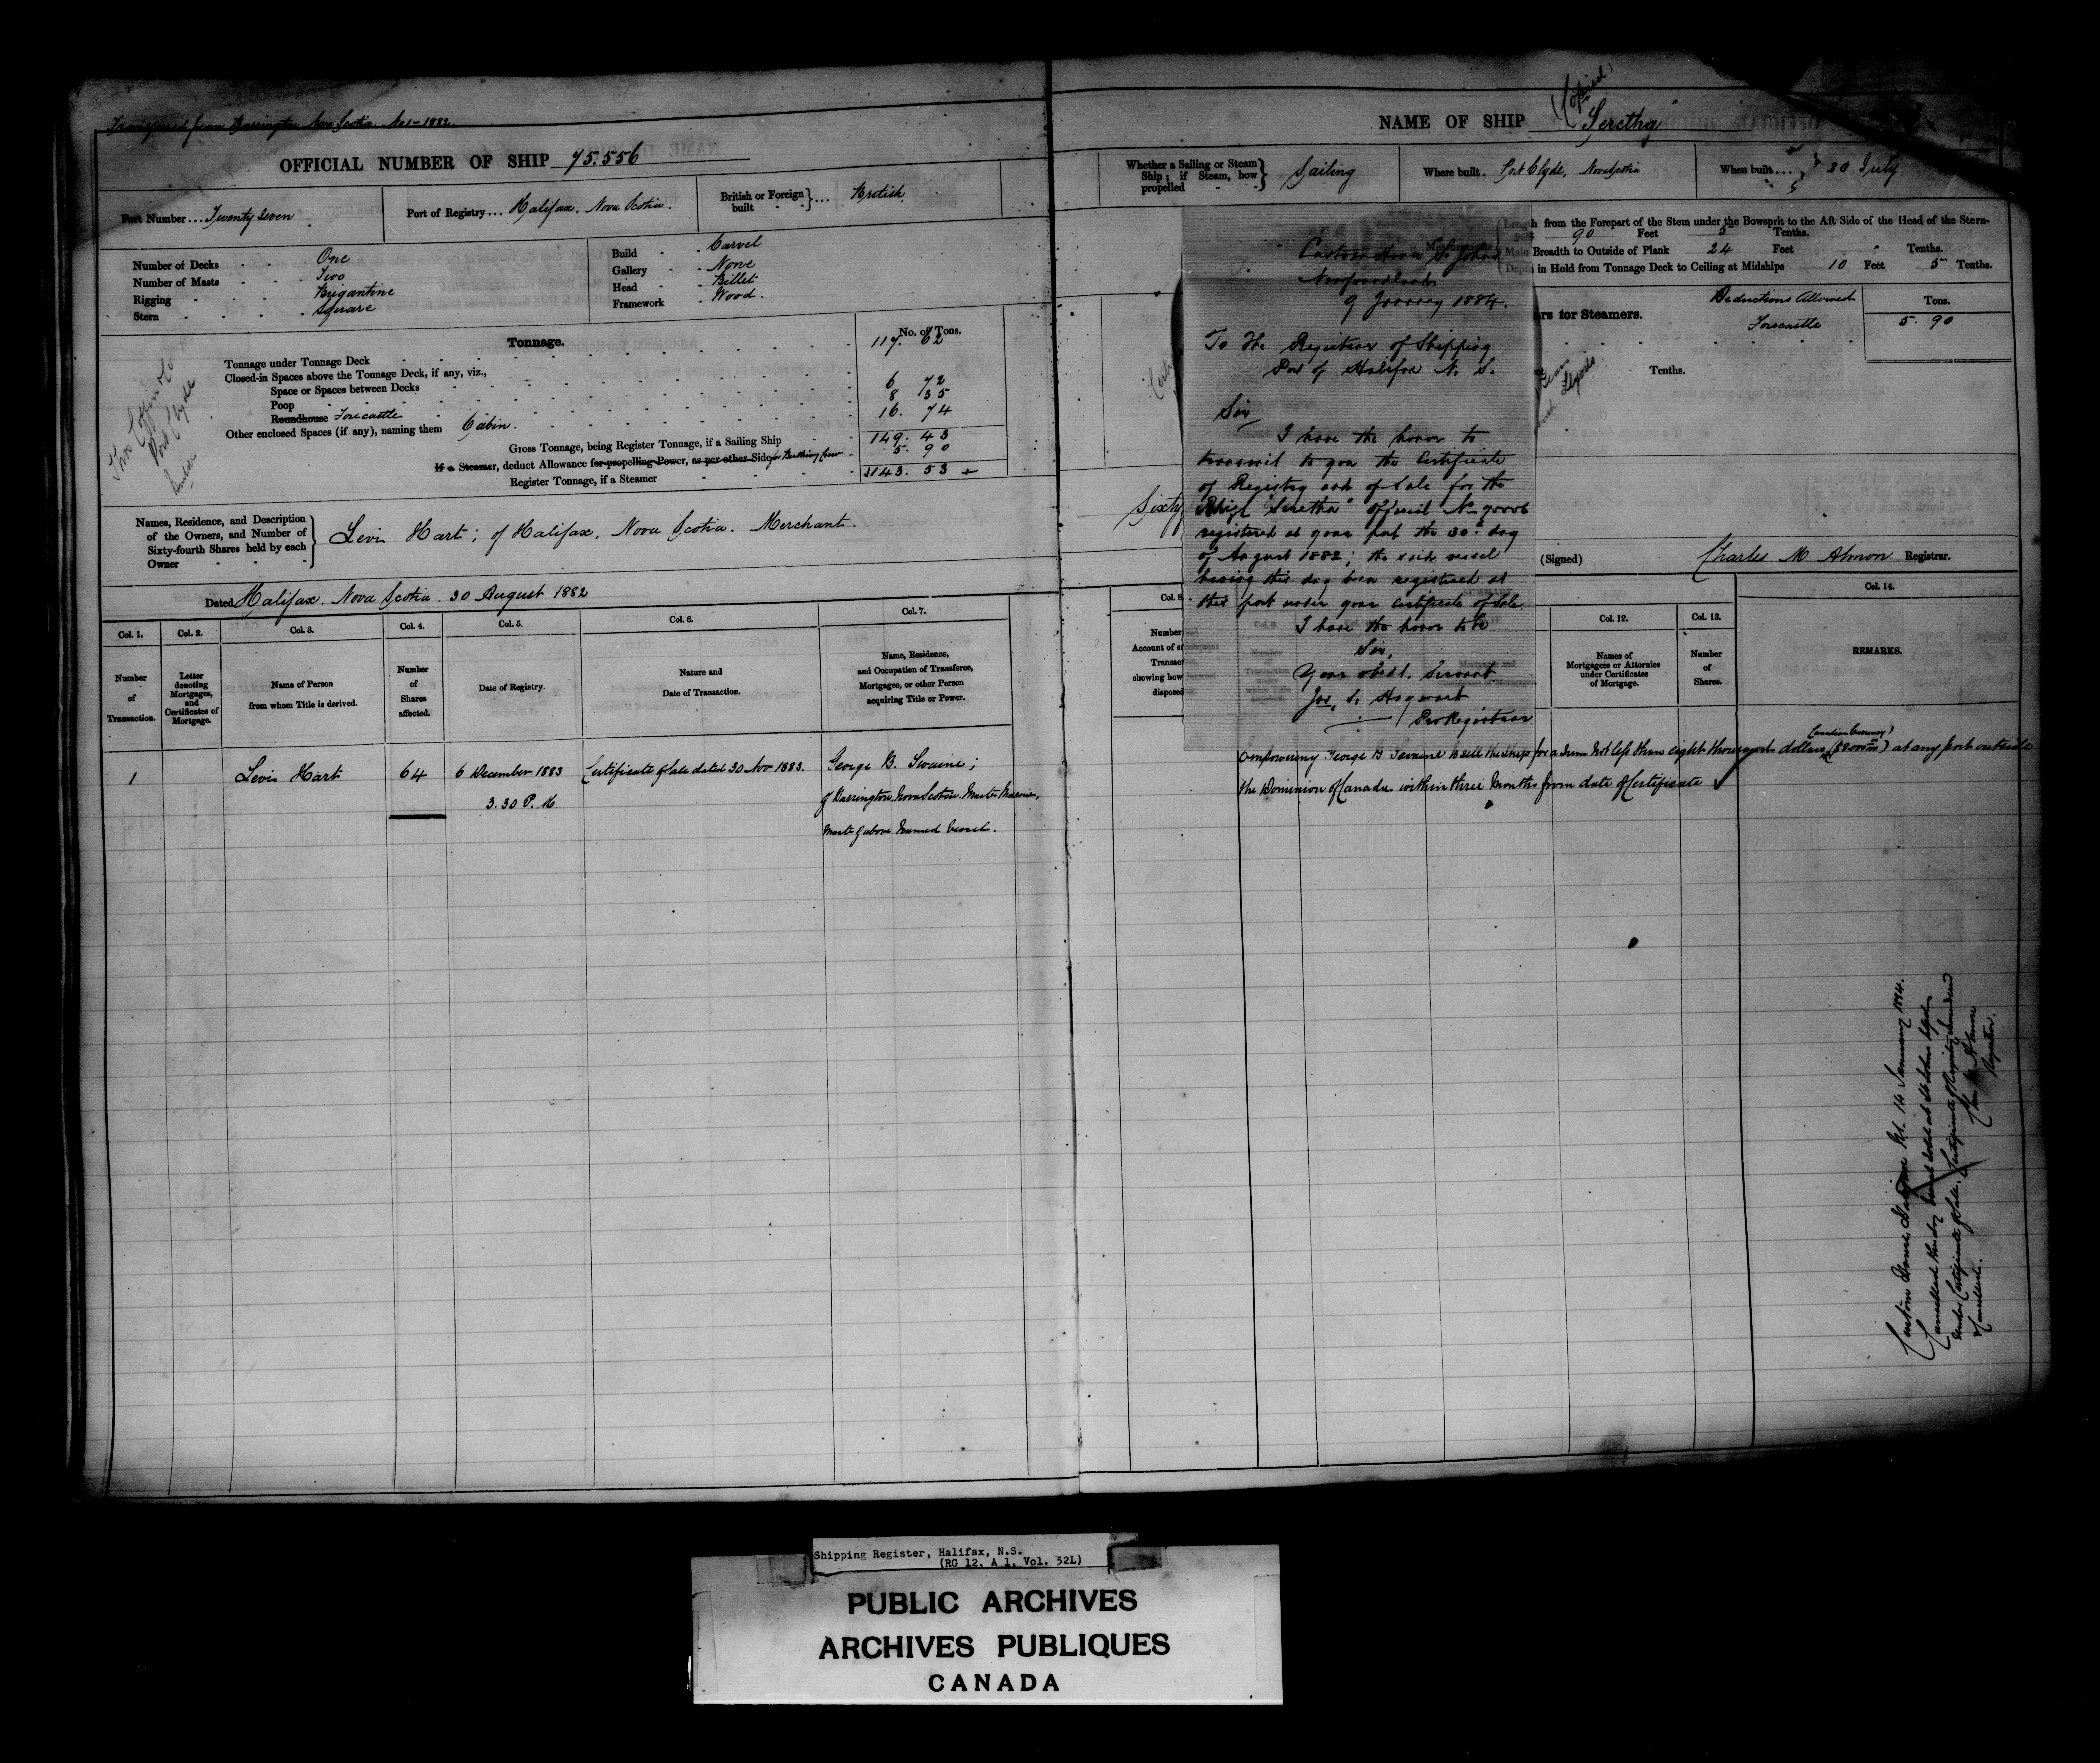 Transferred from Barrington Nova Scotia. No 1-1882.
OFFICIAL NUMBER OF SHIP 75.556
Port Number ... Twenty Seven
Port of Registry ... Halifax. Nova Scotia.
British or Foreign built } ... British
Number of Decks One
Number of Masts Two
Rigging Brigantine
Stern Square
Build Carvel
Gallery None
Head Billet
Framework Wood.
Tonnage.
No. of Tons.
Tonnage under Tonnage Deck 117. 62
Closed-in Spaces above the Tonnage Deck, if any, viz.,
Space or Spaces between Decks 6 72
Poop 8 35
Roundhouse Forecastle 16. 74
Other enclosed Spaces (if any), naming them Cabin.
Gross Tonnage, being Register Tonnage, if a Sailing Ship 149. 43
If a Steamer, deduct Allowance for propelling Power, as per other Side for Berthing Crew 5. 90
Register Tonnage, if a Steamer 143. 53
Port Clyde
Names, Residence, and Description
of the Owners, and Number of
Sixty-fourth Shares held by each
Owner
Levi Hart; of Halifax. Nova Scotia. Merchant.
Dated Halifax. Nova Scotia. 30 August 1882
Col. 1. Col. 2. Col. 3. Col. 4. Col. 5. Col. 6. Col. 7.
Number of Transaction.
Letter denoting Mortgages, and Certificates of Mortgage.
Name of Person from whom Title is derived.
Number of Shares affected.
Date of Registry.
Nature and Date of Transaction.
Name, Residence, and Occupation of Transferee, Mortgagee, or other Person acquiring Title or Power.
1 Levi Hart 64 6 December 1883 Certificate of Sale dated 30 Nov 1883. George B. Swaine;
3.30 P. M. of Barrington Nova Scotia Master Mariner,
Master of above Named Vessel.
(Copied)
NAME OF SHIP "Seretha"
Whether a Sailing or Steam Ship; if Steam, how propelled } Sailing
Where built. Port Clyde, Nova Scotia
When built ... 20 July
Length from the Forepart of the Stem under the Bowsprit to the Aft Side of the Head of the Stern-
90 Feet 5 Tenths.
Main Breadth to Outside of Plank 24 Feet " Tenths.
Depth in Hold from Tonnage Deck to Ceiling at Midships 10 Feet 5 Tenths.
rs for Steamers.
Deductions Allowed
Tons.
Forecastle 5. 90
Tenths.
Custom House St. Johns
Newfoundland
9 January 1884.
To The Registrar of Shipping
Port of Halifax N. S.
Sir
I have the honor to
transmit to you the Certificate
of Registry and of Sale for the
Brigt "Seretha" Official No
registered at your port the 30th day
of August 1882; the said vessel
having this day been registered at
this port under your Certificate of Sale.
I have the honor to be
Sir,
Your obedt. Servant
Jas. S. Hayward
Pro Registrar
Sixty
(Signed) Charles M Almon Registrar.
Col. 8. Col. 12. Col. 13. Col. 14.
Number
Account of
Transact
showing how
disposed
Names of Mortgagees or Attornies under Certificates of Mortgage.
Number of Shares.
REMARKS.
(Canadian Currency)
Empowering George B Swaine to sell the Ship for a Sum Not less than eight thousand dollars ($8000) at any port outside
the Dominion of Canada within three Months from date of Certificate
Custom House, Halifax NS. 14 January 1884.
Cancelled this day Vessel sold at St Johns Nfld
under Certificate of Sale. Certificate of Registry
Cancelled.
Registrar.
Shipping Register, Halifax, N.S.
(RG 12, A 1, Vol. 52L)
PUBLIC ARCHIVES
ARCHIVES PUBLIQUES
CANADA